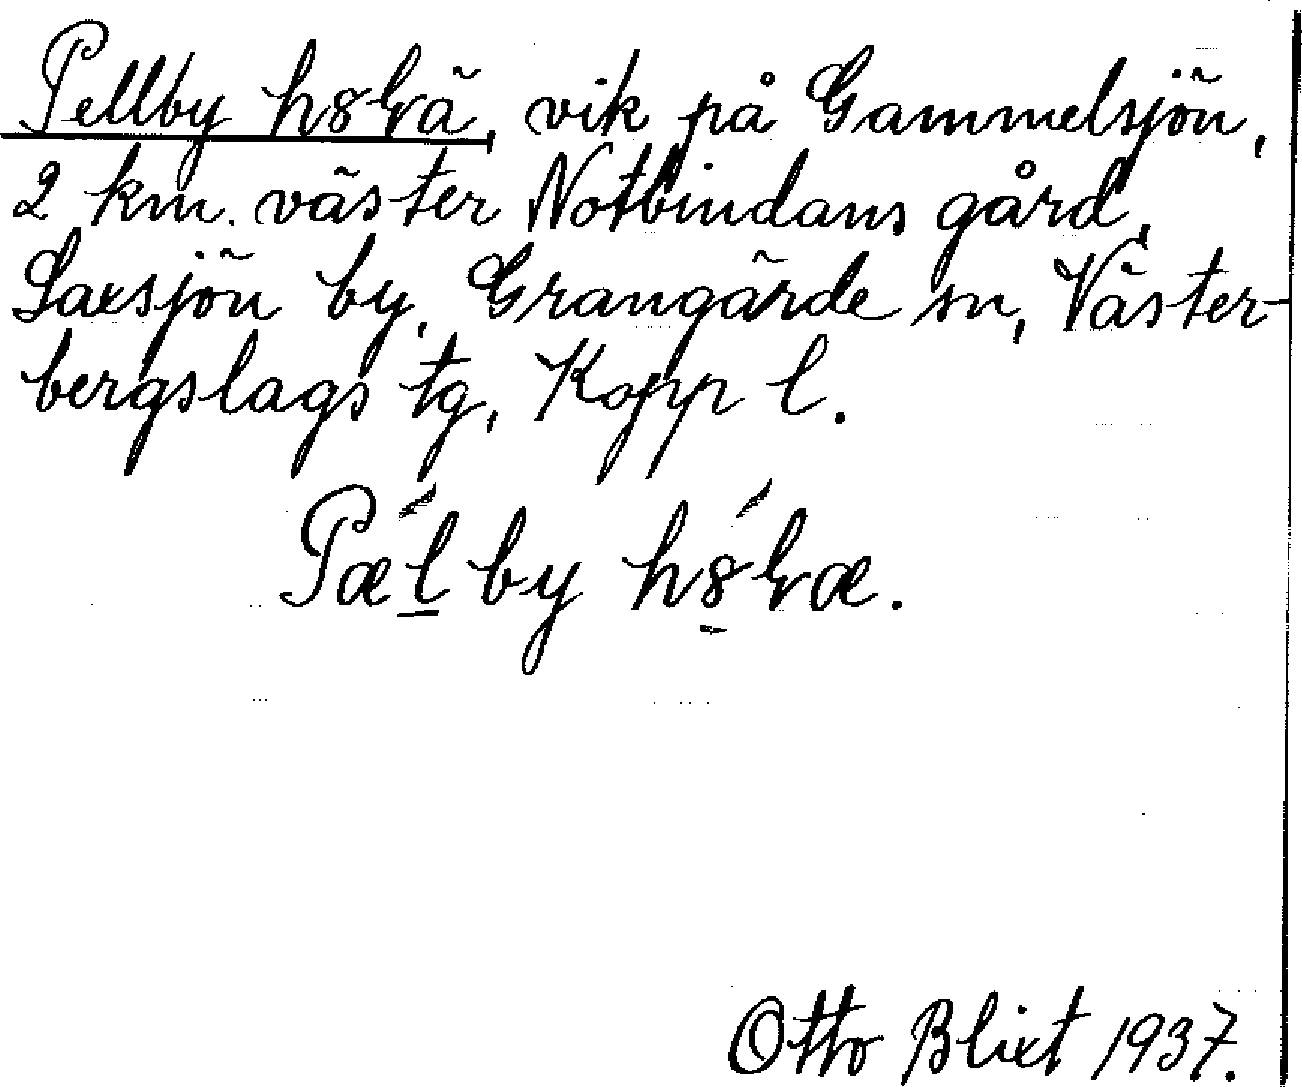 Pellby h8lrä, vik på Gammelsjön,
2 km. väster Notbindans gård,
Saxsjön by, Grangärde sn, Väster-
bergslags tg, Kopp l.
Pæ´l by h8´lræ.
Otto Blixt 1937.